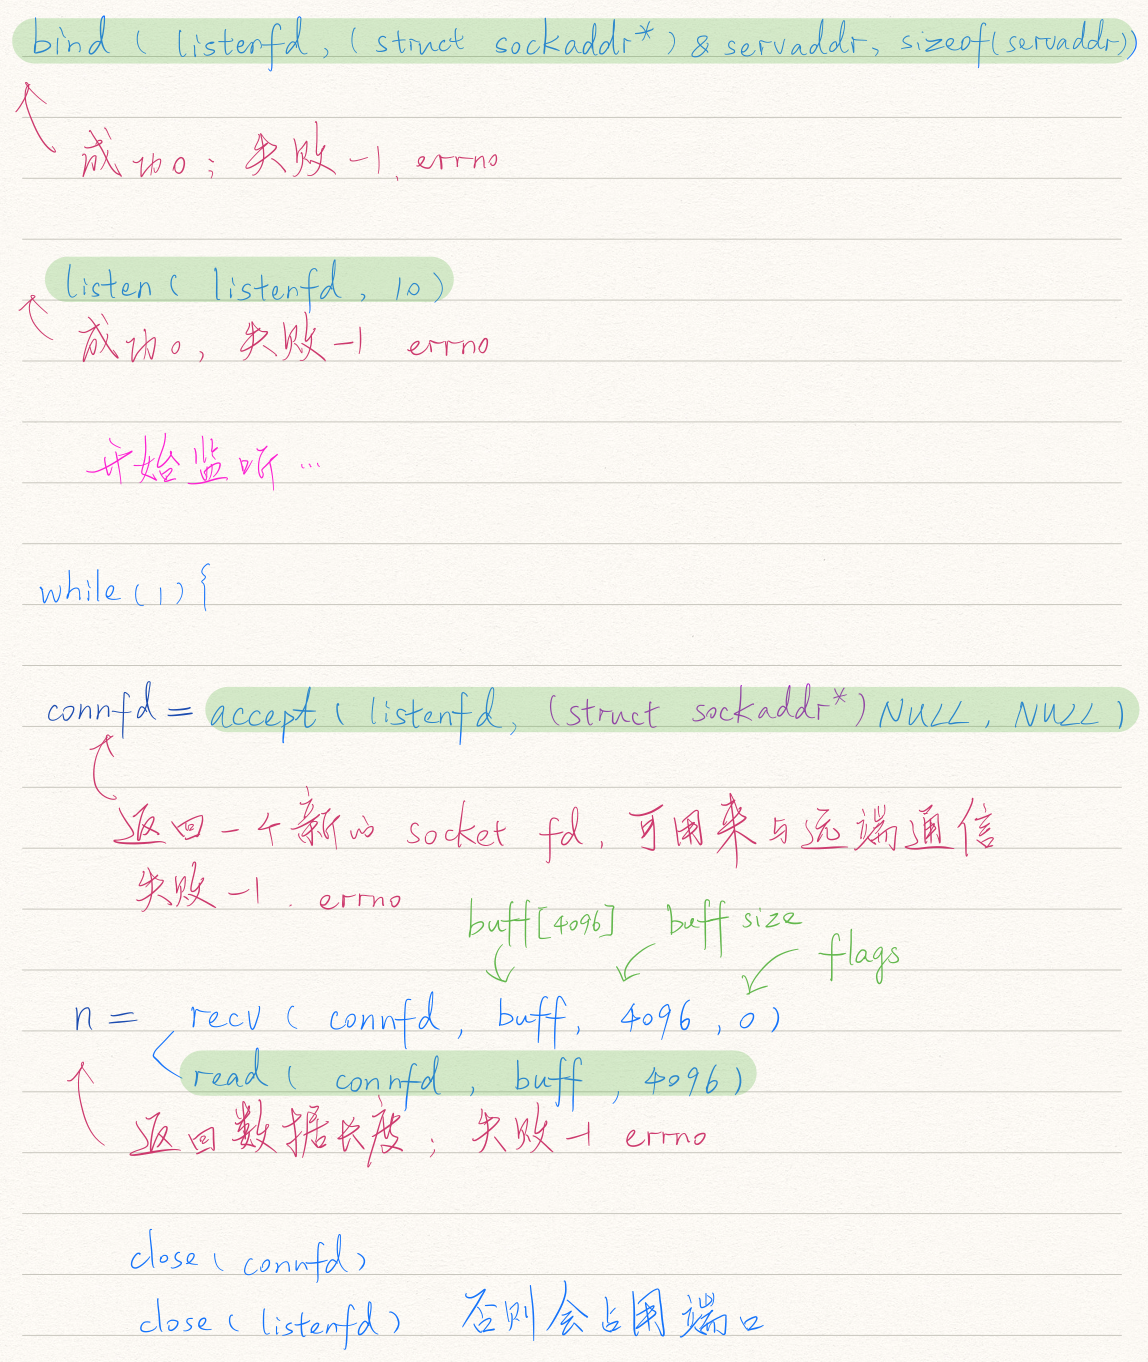 bind ( listenfd, (struct sockaddr*) & servaddr, sizeof(servaddr))
成功0; 失败-1, errno
listen ( listenfd, 10)
成功0, 失败-1 errno
开始监听…
while (1) {
connfd = accept ( listenfd, (struct sockaddr*) NULL, NULL )
返回一个新的 socket fd, 可用来与远端通信
失败-1. errno
buff[4096] buff size
flags
n = recv ( connfd, buff, 4096, 0)
read ( connfd, buff, 4096)
返回数据长度; 失败-1 errno
close ( connfd)
close ( listenfd) 否则会占用端口